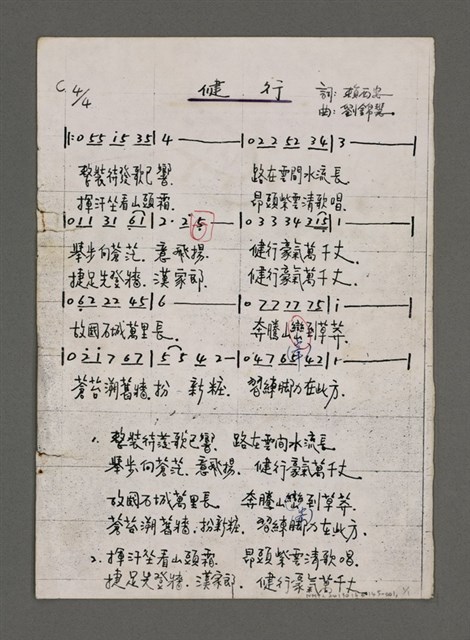 健行
C 4/4
詞:趙西忠
曲:劉錦昌
|1: 0 55 i5 35 | 4 - - - | 0 22 52 34 | 3 - - - |
整裝待發歌已響 路在雲間水流長
揮汗坐看山頭霜 昂頭紫雲清歌唱
0 11 31 61 | 2 · 2 5 | 0 33 34 215 | 1 - - - |
舉步向蒼茫 意飛揚 健行豪氣萬千丈
捷足先登牆 漢家郎 健行豪氣萬千丈
0 62 22 45 | 6 - - - | 0 77 77 75 | i - - - |
故國石城萬里長 奔騰山巒到草莽
0 2i 7 67 | 5 5 4 2 - | 0 47 65 42 | 1 - - |
蒼苔溯舊牆扮 新粧 習練腳力在此方
1. 整裝待發歌已響 路在雲間水流長
舉步向蒼茫 意飛揚 健行豪氣萬千丈
故國石城萬里長 奔騰山巒到草莽
蒼苔溯舊牆 扮新粧 習練腳力在此方
2. 揮汗坐看山頭霜 昂頭紫雲清歌唱
捷足先登牆 漢家郎 健行豪氣萬千丈